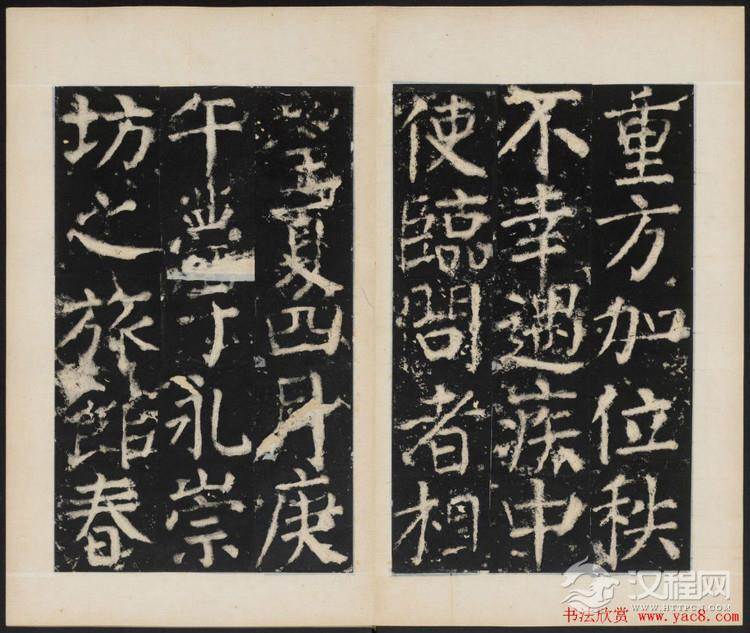 重方加位秩
不幸遇疾中
使臨問者相
望夏四月庚
午薨于永崇
坊之旅館春
汉程网
WWW.HTTPCN.COM
书法欣赏 www.yac8.com